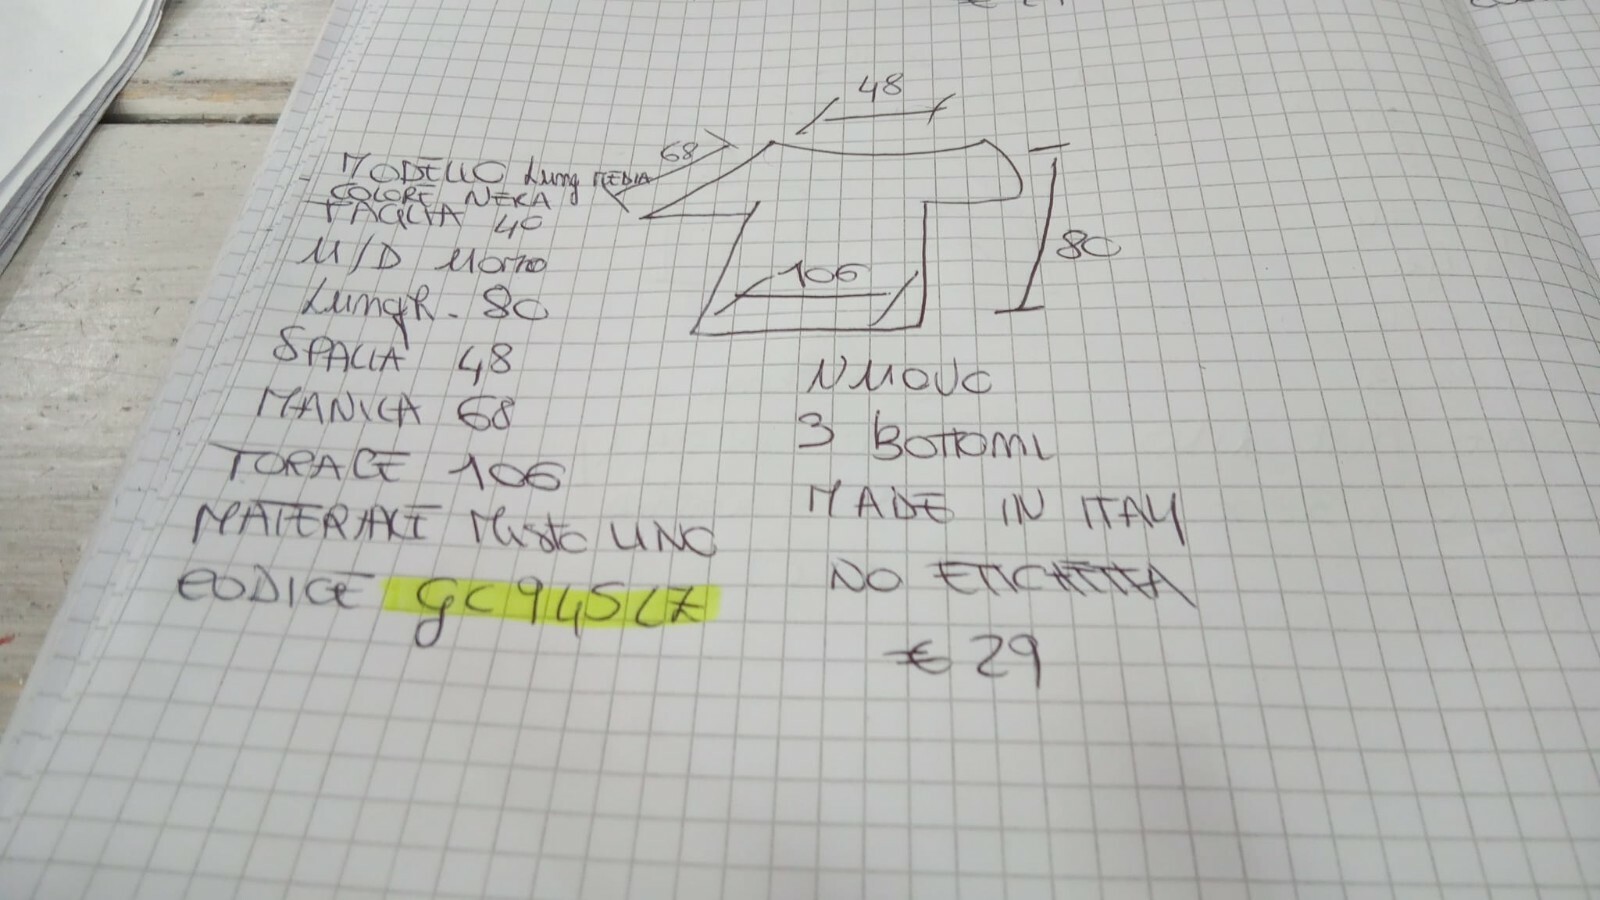 48
68
MODELLO Lung MEDIA
COLORE NERA
TAGLIA 40
U/D UOMO
Lungh. 80
SPALLA 48
MANICA 68
TORACE 106
MATERIALE Misto LINO
CODICE GC945LZ
106
80
NUOVO
3 BOTTONI
MADE IN ITALY
NO ETICHETTA
€ 29